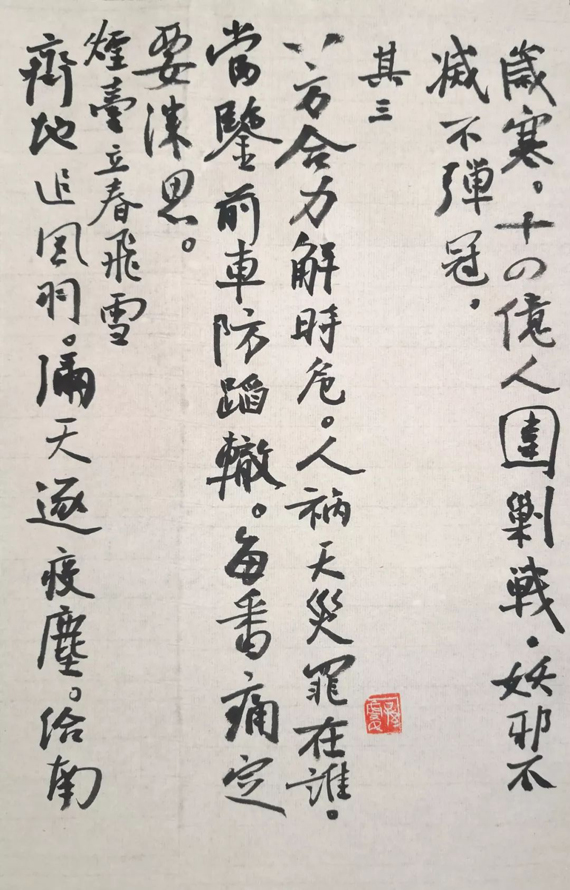 歲寒。十の億人圍剿戰。妖邪不
滅不彈冠。
其三
八方合力解時危。人禍天災罪在誰。
當鑒前車防蹈轍。每番痛定
要深思。
煙臺立春飛雪
齊地近風羽。滿天逐疫塵。給南